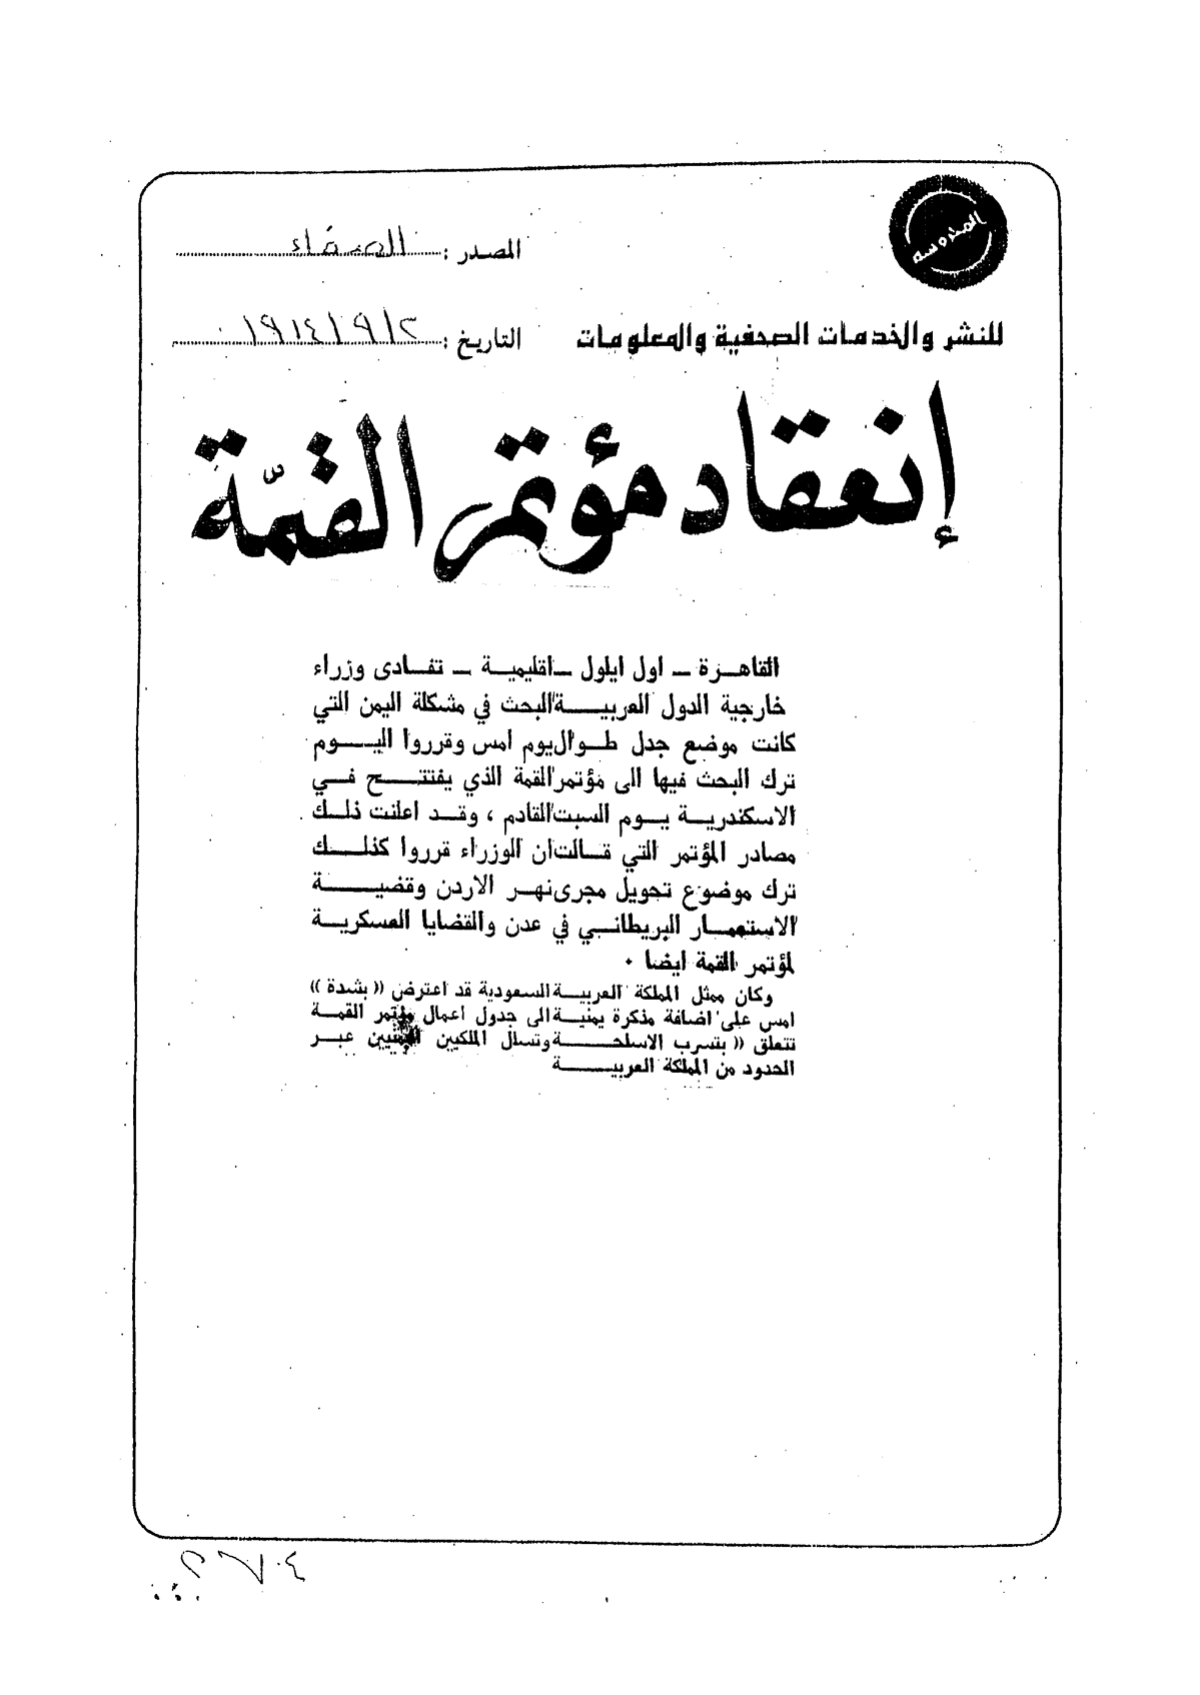 المحروسة
المصدر : الصفاء
للنشر والخدمات الصحفية والمعلومات
التاريخ : ١٩٦٤/٩/٢
إنعقاد مؤتمر القمّة
القاهــرة ــ اول ايلول ــ اقليميــة ــ تفــادى وزراء
خارجية الدول العربيــــة البحث في مشكلة اليمن التي
كانت موضع جدل طــوال يوم امس وقرروا اليــــوم
ترك البحث فيها الى مؤتمر القمة الذي يفتتــــح فــي
الاسكندريــة يــوم السبت القادم ، وقــد اعلنت ذلــك
مصادر المؤتمر التي قــالت ان الوزراء قرروا كذلــــك
ترك موضوع تحويل مجرى نهــر الاردن وقضيــــــة
الاستعمــار البريطانــي في عدن والقضايا العسكريــة
لمؤتمر القمة ايضا .
وكان ممثل المملكة العربيــة السعودية قد اعترض (( بشدة ))
امس على اضافة مذكرة يمنيــة الى جدول اعمال مؤتمر القمــة
تتعلق (( بتسرب الاسلحــــة وتسلل الملكيين اليمنيين عبــر
الحدود من المملكة العربيــــــة